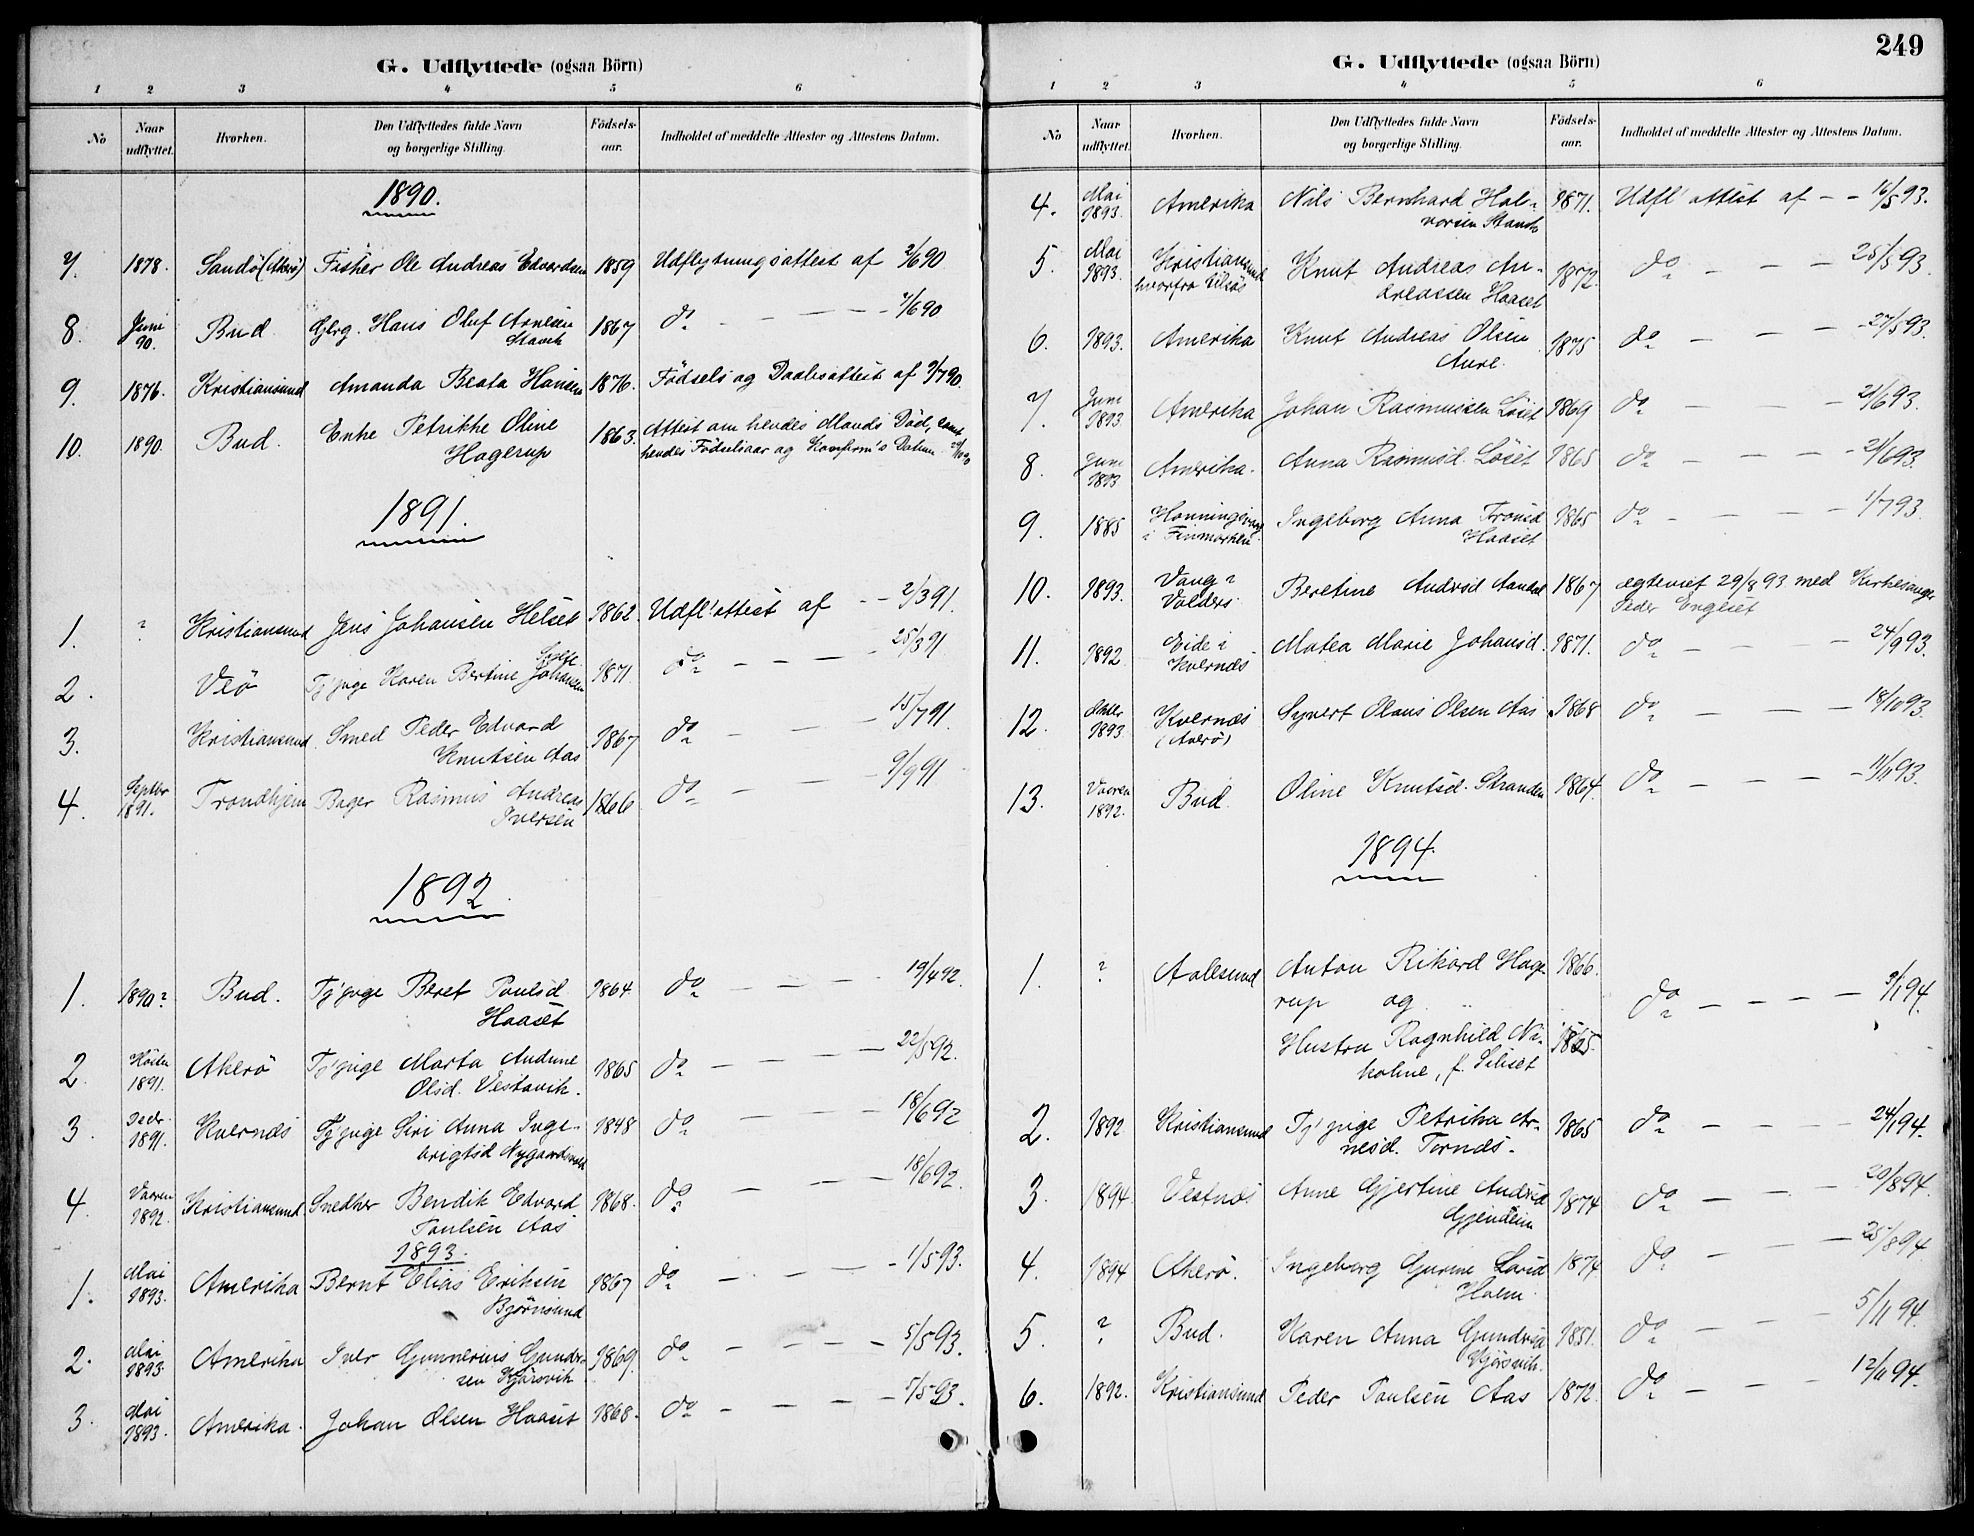 G. Udflyttede (ogsaa Börn)
1 2 3 4 5 6
No Naar udflyttet. Hvorhen. Den Udflyttedes fulde Navn og borgerlige Stilling. Födsels-aar. Indholdet af meddelte Attester og Attestens Datum.
1890.
7. 1878. Sandö (Akerö) Fisker Ole Andreas Edvardsen 1859 Udflytningsattest af 2/6 90
8. Juni 90. Bud Gbrg. Hans Oluf Arnesen 1867 do - - - 7/6 90
Stavik
9. 1876. Kristiansund Amanda Beata Hansen 1876. Födsels og Daabsattest af 9/7 90.
10. 1890. Bud. Enke Petrikke Oline 1863. Attest om hendes Mands Död, samt
Hagerup hendes Födselsaar og Konfirm's Datum
1891.
1. ? Kristiansund Jens Johansen Helset 1862. Udfl.attest af - - 2/3 91.
2. Veö Tj pige Karen Bertine Johansen 1871. do - - - 25/3 91
3. Kristiansund Smed Peder Edvard 1867 do - - - 15/7 91.
Knutsen Aas
4. Septbr 1891. Trondhjem Bager Rasmus Andreas 1866 do - - - 9/9 91
Iversen
1892.
1. 1890? Bud. Tj'pige Beret Paulsd. 1864. do - - - 19/4 92.
Haaset
2. Hösten 1891. Akerö Tj'pige Marta Andrine 1865 do - - - 22/5 92.
Olsd. Vestavik.
3. Decbr. 1891. Kvernæs Tj'pige Siri Anna Inge- 1848 do - - - 18/6 92
brigtsd Nygaardsvald
4. Vaaren 1892. Kristiansund. Snedker Bendik Edvard 1868. do - - - 18/6 92.
Paulsen Aas
1893.
1. Mai 1893. Amerika Bernt Elias Eriksen 1867 do - - - 1/5 93.
Bjørnsund
2. Mai 1893. Amerika Iver Gunnerius Gunder- 1869. do - - - 5/5 93.
sen Kjørsvik
3. Mai 1893. Amerika. Johan Olsen Haaset 1868. do - - - 5/5 93.
249
G. Udflyttede (ogsaa Börn)
1 2 3 4 5 6
No Naar udflyttet. Hvorhen. Den Udflyttedes fulde Navn og borgerlige Stilling. Födsels-aar. Indholdet af meddelte Attester og Attestens Datum.
4. Mai 1893. Amerika Nils Bernhard Hal- 1871. Udfl' attest af - - 16/5 93.
vorsen Stavik
5. Mai 1893. Kristiansund Knut Andreas An- 1872. do - - - 25/5 93.
hvorfra dreassen Haaset
6. 1893. Amerika Knut Andreas Olsen 1875 do - - - 27/5 93.
Aure.
7. Juni 1893. Amerika Johan Rasmussen Löset 1869 do - - - 21/6 93.
8. Juni 1893 Amerika. Anna Rasmusd. Löset 1865 do - - - 21/6 93.
9. 1885 Honningsvaag Ingeborg Anna Tronsd 1865 do - - - 1/7 93.
i Finmarken. Haaset
10. 1893. Vang i Beretine Andrsd Aandal 1867 ægteviet 29/8 93 med Kirkesanger
Valders. Peder Engeset
11. 1892 Eide i Matea Marie Johansd. 1871. do - - - 24/9 93.
Kvernæs
12. Oktbr 1893. Kvernæs Syvert Olaus Olsen Aas 1868 do - - - 18/10 93.
(Averö)
13. Vaaren 1892. Bud Oline Knutsd. Stranden 1864. do - - - 11/11 93.
1894.
1. ? Aalesund Anton Rikard Hage- 1866.
rup og do - - - 3/1 94.
Hustru Ragnhild Ni- 1865.
koline, f. Silset
2. 1892 Kristiansund Tj' pige Petrika Ar- 1865 do - - - 24/1 94.
nesd. Tornæs.
3. 1894. Vestnæs Anne Gjertine Andrsd 1874 do - - - 20/8 94.
Gjendem
4. 1894 Akerö. Ingeborg Gurine Larsd 1874 do - - - 25/8 94
Holm
5. ? Bud. Karen Anna Gundersd 1851. do - - - 5/11 94.
Kjørsvik.
6. 1892. Kristiansund Peder Paulsen Aas 1872. do - - - 12/11 94.